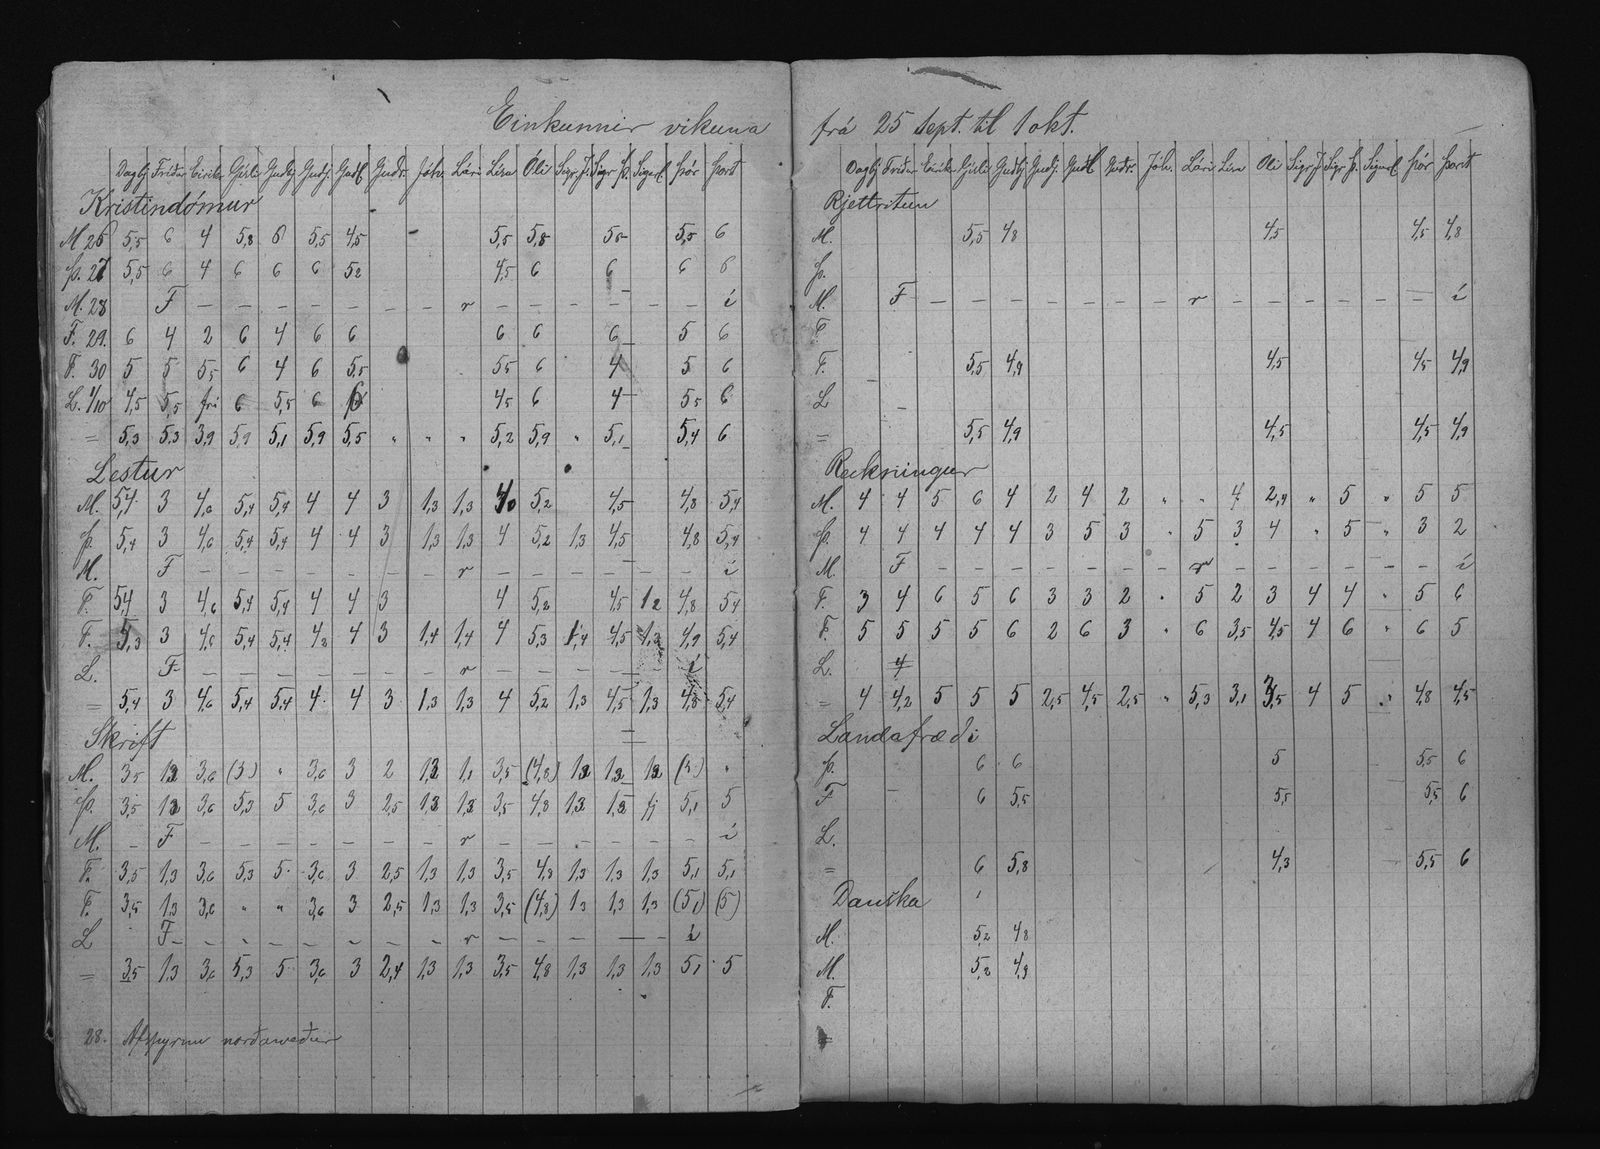 Einkunnir vikuna
Dagbj Friður Eirík Gísli Guðbj Guðj. Guðl Guðr. Jóh. Lári Lísa Óli Sigr J. Sigr Þ. Sigurl Þór Þorst
Kristindómur
M 26 5,5 6 4 5,8 6 5,5 4,5 5,5 5,8 5,5 6
Þ. 27 5,5 6 4 6 6 6 52 4,5 6 6 6 6
M. 28 F – – – – – – – r – – – – – – í
F. 29. 6 4 2 6 4 6 6 6 6 6 5 6
F. 30 5 5 5,5 6 4 6 5,5 55 6 4 5 6
L. 1/10 4,5 5,5 frí 6 5,5 6 45 6 4 55 6
= 5,3 5,3 3,9 5,9 5,1 5,9 5,5 " " " 5,2 5,9 " 5,1 5,4 6
Lestur
M. 5,4 3 4,6 5,4 5,4 4 4 3 1,3 1,3 40 5,2 4,5 4,8 5,4
Þ. 5,4 3 4,6 5,4 5,4 4 4 3 1,3 1,3 4 5,2 1,3 4,5 4,8 5,4
M. F – – – – – – – r – – – – – – í
F. 5,4 3 4,6 5,4 5,4 4 4 3 4 5,2 4,5 12 4,8 54
F. 5,3 3 4,6 5,4 5,4 4 3 1,4 1,4 4 5,3 1,4 4,5 1,3 4,9 5,4
L. F – – – – – – – r – – – – – í
= 5,4 3 4,6 5,4 5,4 4 4 3 1,3 1,3 4 5,2 1,3 4,5 1,3 4,8 5,4
Skrift
M. 3,5 3,6 (3) " 3,6 3 2 3,5 (4,8) "
Þ. 3,5 3,6 5,3 5 3,6 3 2,5 3,5 4,8 fj 5,1 5
M. – F – – – – – – – r – – – – – – í
F. 3,5 1,3 3,6 5,3 5 3,6 3 2,5 1,3 1,3 3,5 4,8 1,3 1,3 1,3 5,1 5,1
F. 3,5 1,3 3,6 " " 3,6 3 2,5 1,3 1,3 3,5 (4,8) 13 1,3 1,3 (5,1) (5)
L F – – – – – – – r – – – – – í
= 3,5 1,3 3,6 5,3 5 3,6 3 2,4 1,3 1,3 3,5 4,8 1,3 1,3 1,3 5,1 5
28. Afspyrnu norðanveður
frá 25 sept. til 1 okt.
Dagbj Friður Eirík Gísli Guðbj Guðj. Guðl Guðr. Jóh. Lári Lísa Óli Sigr J. Sigr Þ. Sigurl Þór Þorst
Rjettritun
M. 5,5 4,8 4,5 4,5 4,8
Þ.
M. F – – – – – – – r – – – – – – í
F.
F. 5,5 4,9 4,5 4,5 4,9
L
= 5,5 4,9 4,5 4,5 4,9
Reikningur
M. 4 4 5 6 4 2 4 2 " " 4 2,9 " 5 " 5 5
Þ. 4 4 4 4 4 3 5 3 " 5 3 4 " 5 " 3 2
M. F – – – – – – – r – – – – – – í
F. 3 4 6 5 6 3 3 2 " 5 2 3 4 4 " 5 6
F. 5 5 5 5 6 2 6 3 " 6 3,5 4,5 4 6 " 6 5
L. 4
= 4 4,2 5 5 5 2,5 4,5 2,5 " 5,3 3,1 3,5 4 5 " 4,8 4,5
Landafræði
Þ. 6 6 5 5,5 6
F 6 5,5 5,5 5,5 6
L.
= 6 5,8 4,3 5,5 6
Danska
M. 5,2 4,8
M. 5,2 4,9
F.
=